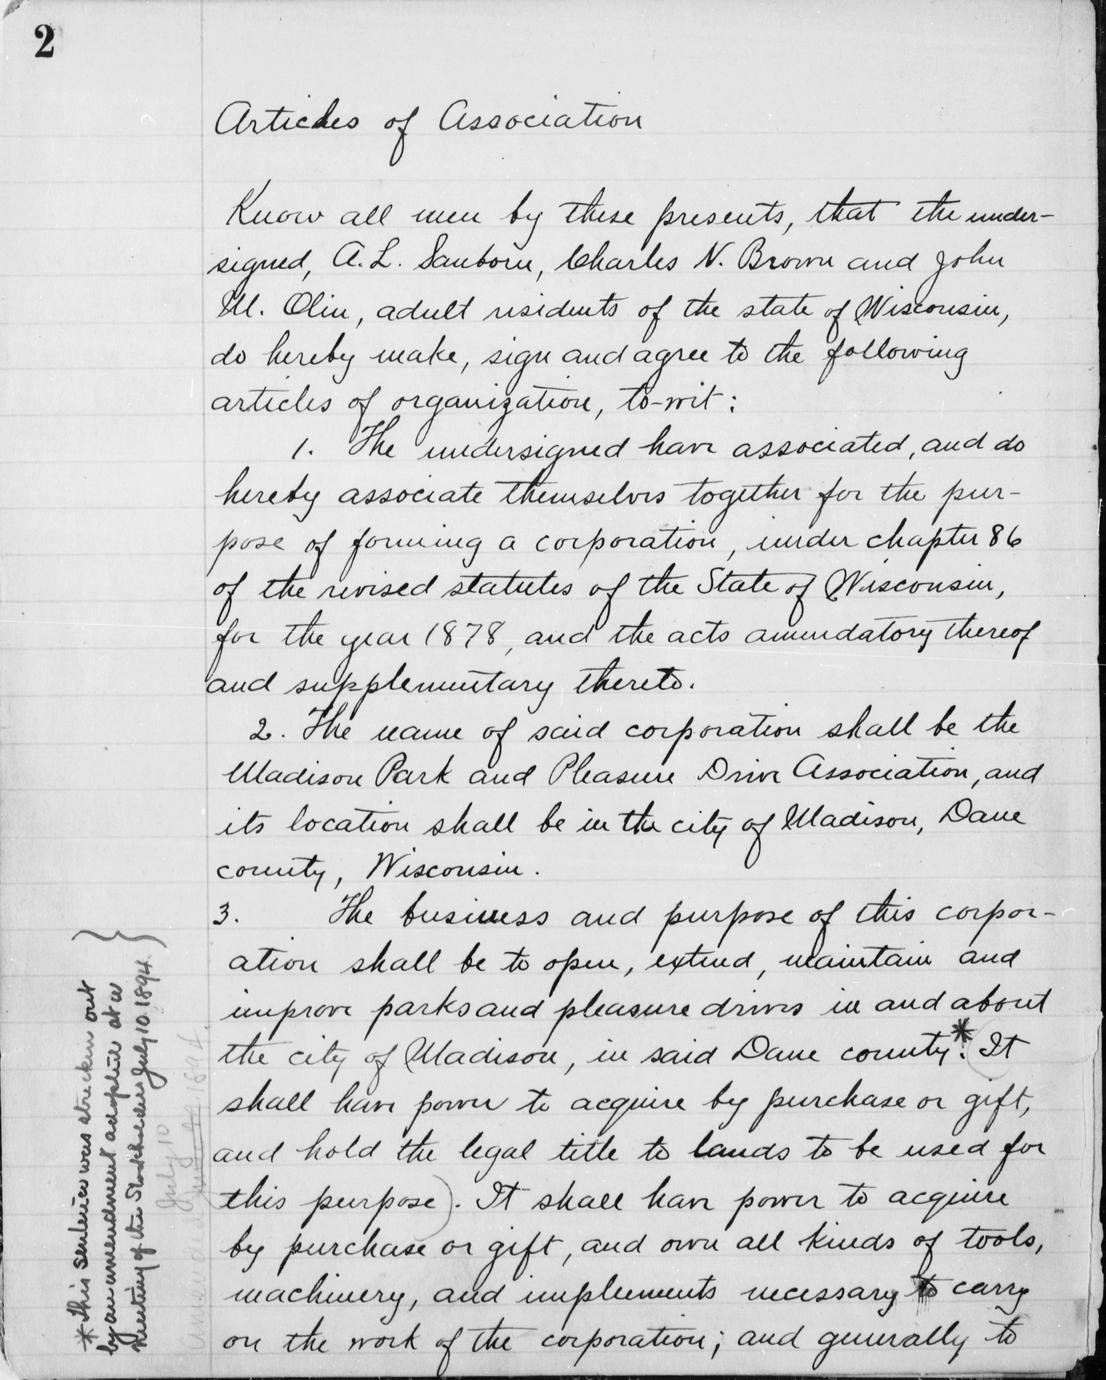 2
Articles of Association
Know all men by these presents, that the under-
signed, A. L. Sanborn, Charles N. Brown and John
M. Olin, adult residents of the state of Wisconsin,
do hereby make, sign and agree to the following
articles of organization, to-wit:
1. The undersigned have associated, and do
hereby associate themselves together for the pur-
pose of forming a corporation, under chapter 86
of the revised statutes of the State of Wisconsin,
for the year 1878, and the acts amendatory thereof
and supplementary thereto.
2. The name of said corporation shall be the
Madison Park and Pleasure Drive Association, and
its location shall be in the city of Madison, Dane
county, Wisconsin.
3. The business and purpose of this corpor-
ation shall be to open, extend, maintain and
improve parks and pleasure drives in and about
the city of Madison, in said Dane county.* (It
shall have power to acquire by purchase or gift,
and hold the legal title to lands to be used for
this purpose). It shall have power to acquire
by purchase or gift, and own all kinds of tools,
machinery, and implements necessary to carry
on the work of the corporation; and generally to
* This sentence was stricken out
by an amendment adopted at a
meeting of the Stockholders July 10, 1894.
Amended July 10 1894.